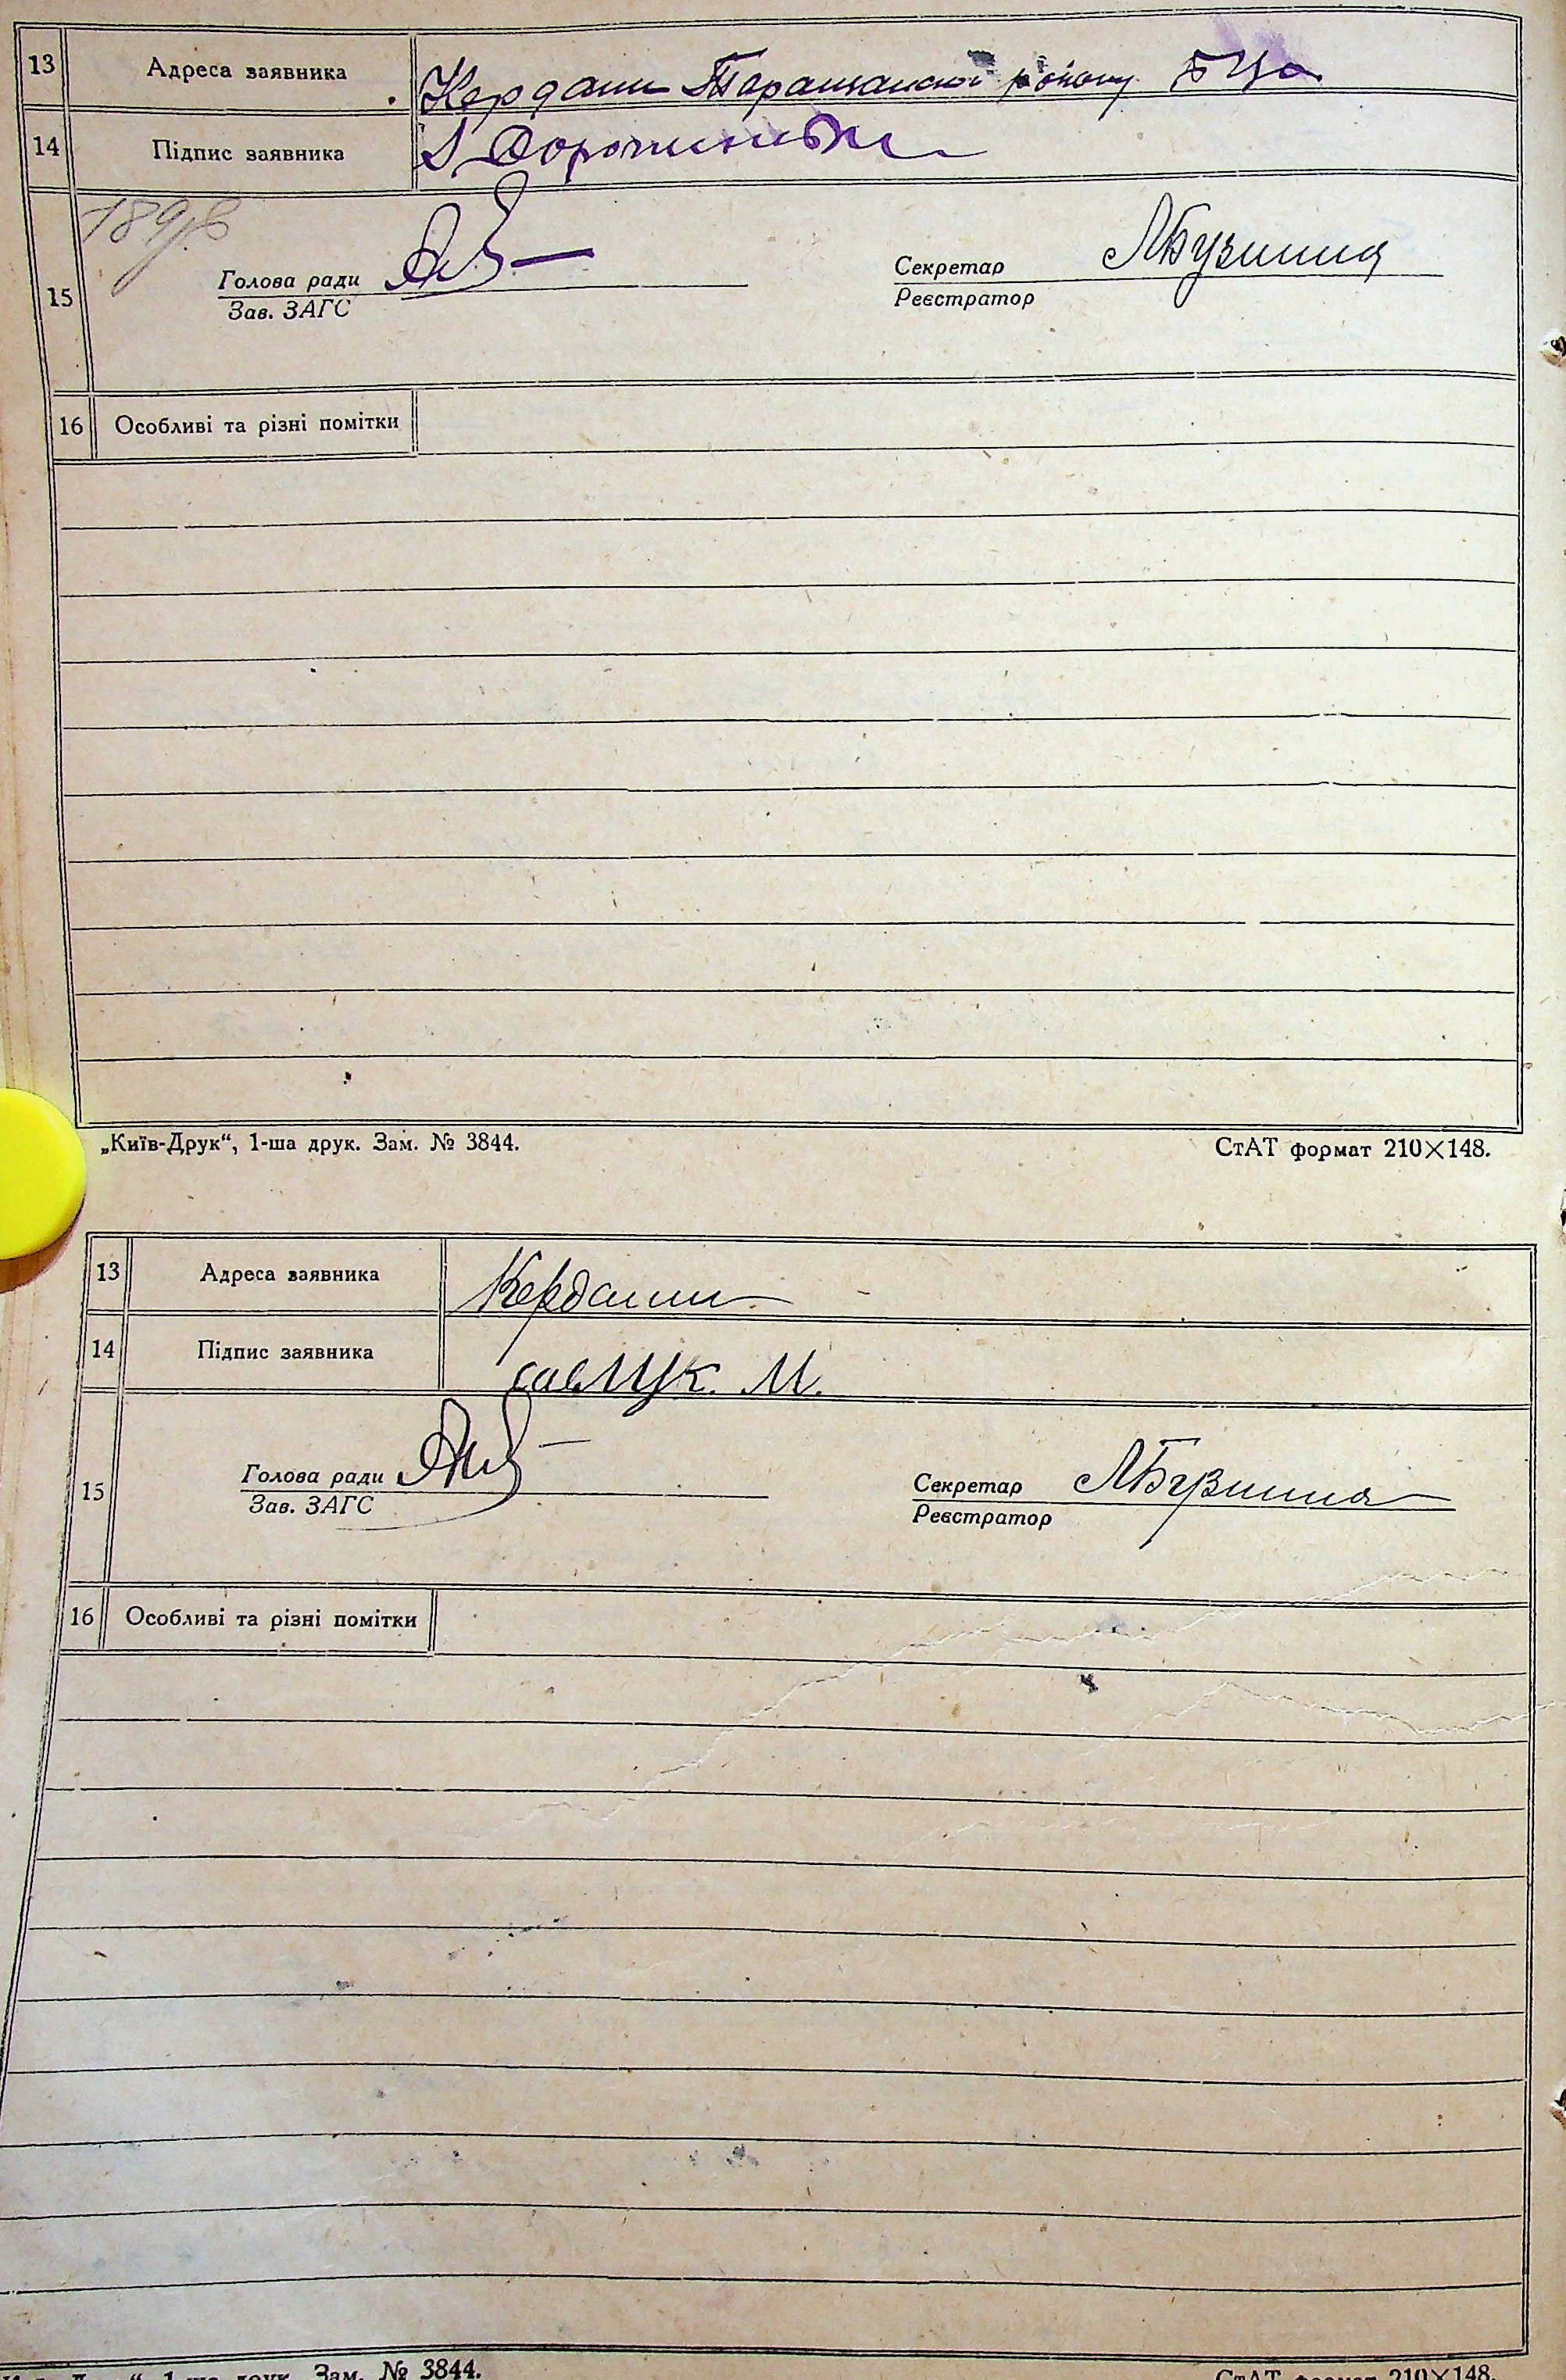 13 Адреса заявника Кердани Таращанског району БЦо
14 Підпис заявника
189/8
15 Голова ради Секретар ЛБузинна
Зав. ЗАГС Реєстратор
16 Особливі та різні помітки
„Київ-Друк“, 1-ша друк. Зам. № 3844. СтАТ формат 210×148.
13 Адреса заявника Кердани
14 Підпис заявника савчук. М.
15 Голова ради Секретар ЛБузинна
Зав. ЗАГС Реєстратор
16 Особливі та різні помітки
1-ша друк. Зам. № 3844. СтАТ формат 210×148.